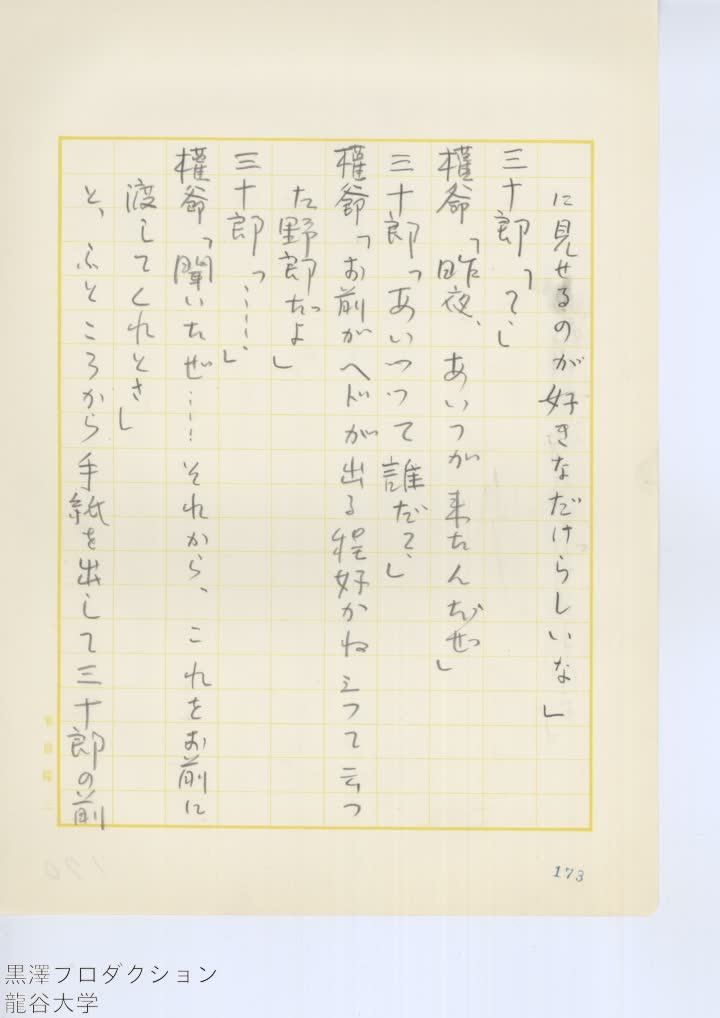 に見せるのが好きなだけらしいな」
三十郎「て、」
權爺「昨夜、あいつが来たんだぜ」
三十郎「あいつって誰だて、」
權爺「お前がヘドが出る程好かねえって云っ
た野郎だよ」
三十郎「……」
權爺「聞いたぜ……それから、これをお前に
渡してくれとさ」
と、ふところから手紙を出して三十郎の前
173
黒澤プロダクション
龍谷大学